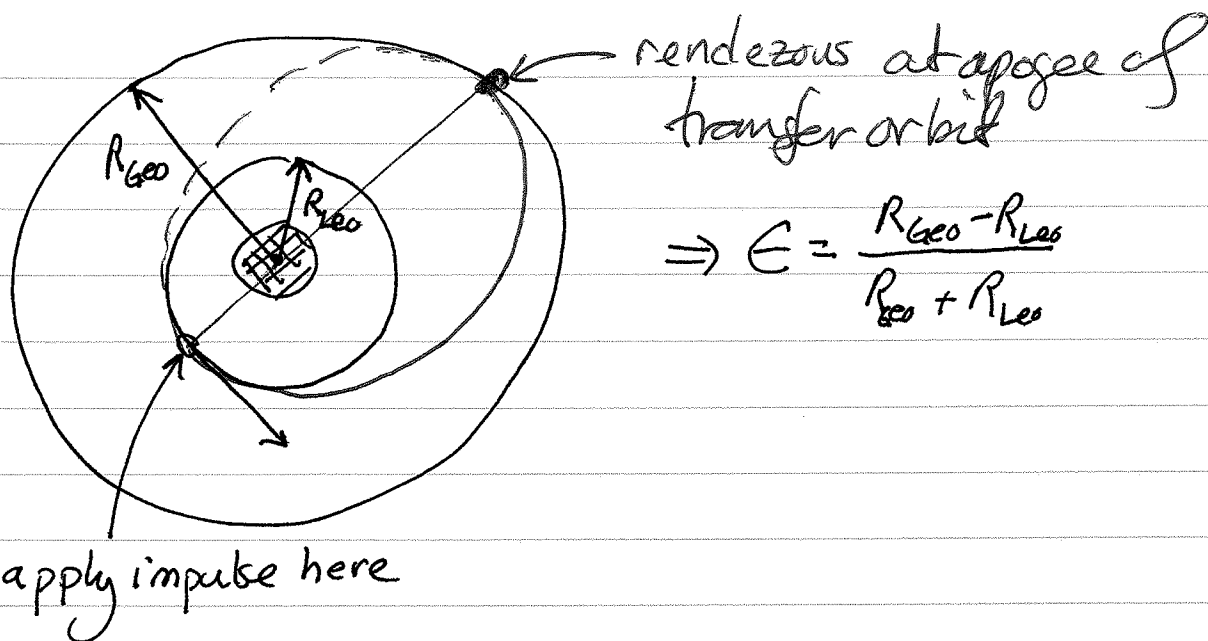 rendezous at apogee of
transfer orbit
R_Geo
R_Leo
⇒ ϵ = (R_Geo - R_Leo) / (R_Geo + R_Leo)
apply impulse here